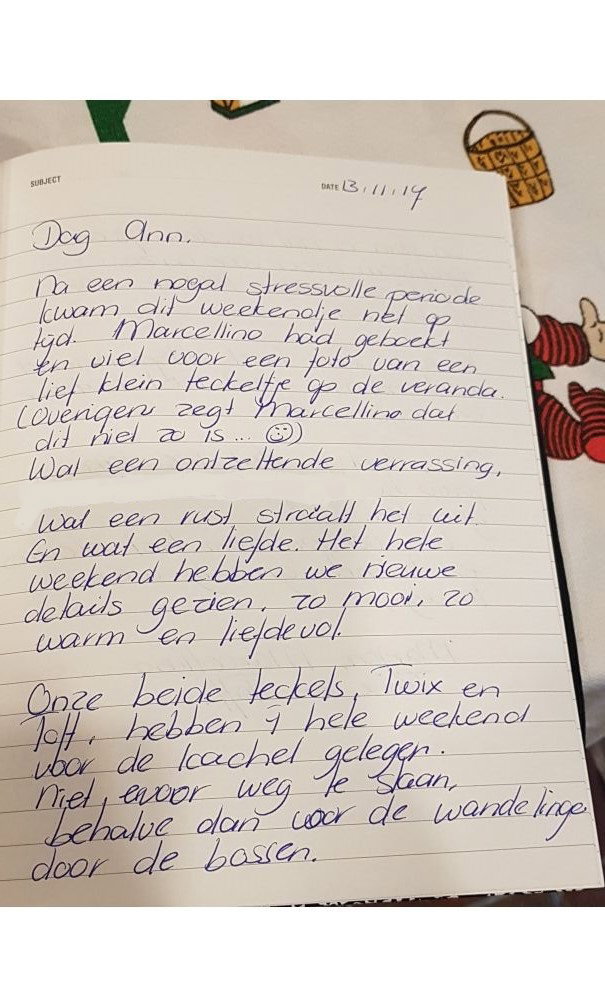 SUBJECT
DATE 13.11.19
Dag Ann,
Na een nogal stressvolle periode
kwam dit weekendje net op
tijd. Marcellino had geboekt
en viel voor een foto van een
lief klein teckeltje op de veranda.
(Overigens zegt Marcellino dat
dit niet zo is... ☺)
Wat een ontzettende verrassing,
Wat een rust straalt het uit.
En wat een liefde. Het hele
weekend hebben we nieuwe
details gezien, zo mooi, zo
warm en liefdevol.
Onze beide teckels, Twix en
Toff, hebben 't hele weekend
voor de kachel gelegen.
Niet ervoor weg te slaan,
behalve dan voor de wandelinge
door de bossen.